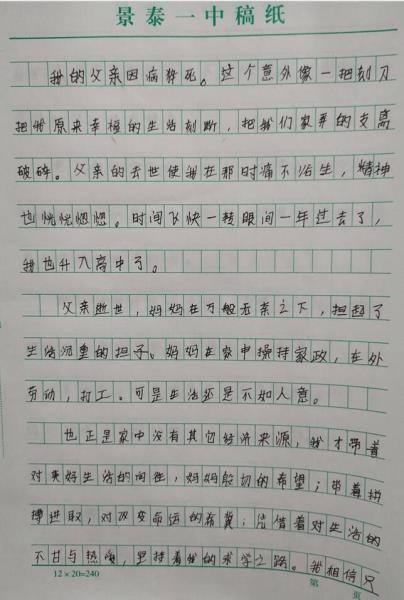 景泰一中稿纸
我的父亲因病猝死。这个意外像一把刻刀
把我原来幸福的生活刻断，把我们家弄的支离
破碎。父亲的去世使我在那时痛不浴生，精神
也恍恍惚惚。时间飞快一转眼间一年过去了，
我也升入高中了。
父亲逝世，妈妈在万般无奈之下，担起了
生活沉重的担子。妈妈在家中操持家政，在外
劳动，打工。可是生活还是不如人意。
也正是家中没有其它经济来源，我才带着
对美好生活的向往，妈妈殷切的希望；带着拼
搏进取，对改变命运的希冀；凭借着对生活的
不甘与热爱，坚持着我的求学之路。我相信只
12×20=240
第 页